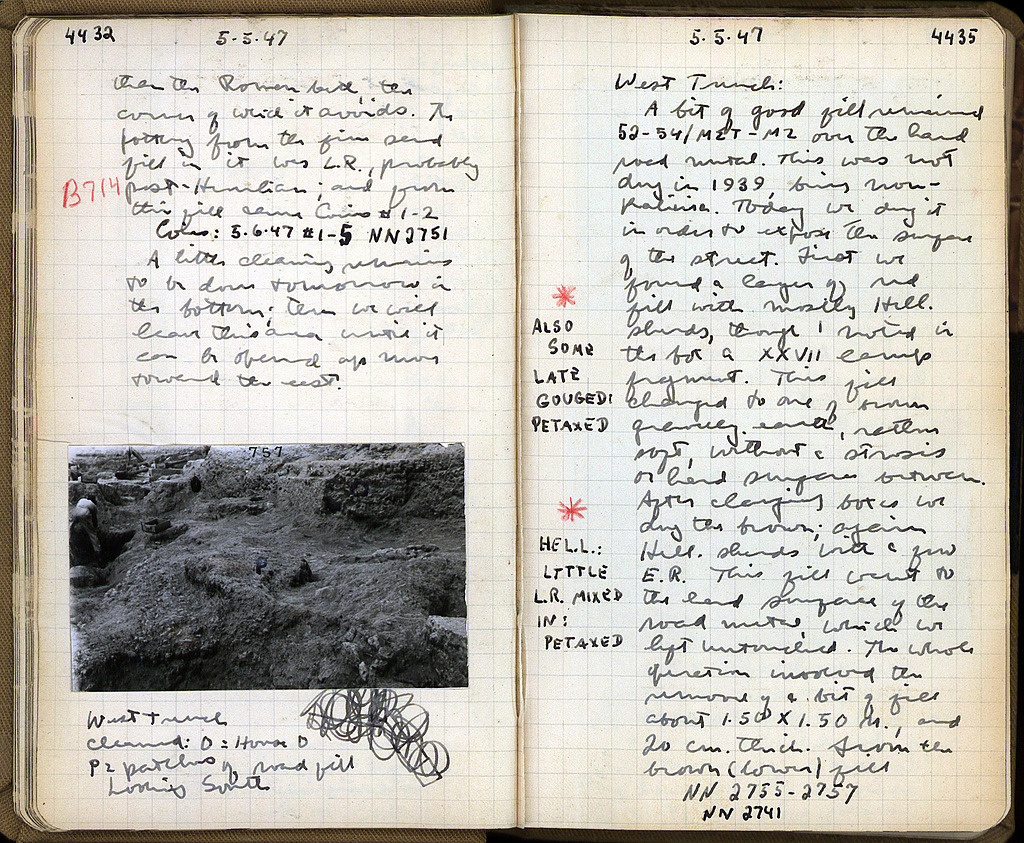 4432
5.5.47
than the Roman bath, the
corner of which it avoids. The
pottery from the fine sand
fill in it was L.R., probably
B714
post-Herulian; and from
this fill came Coins #1-2
Coins: 5.6.47 #1-5 NN2751
A little cleaning remains
to be done tomorrow in
the bottom; then we will
leave this area until it
can be opened up more
toward the east.
757
West trench
cleaned: O = House O
P = patches of road fill
Looking South
5.5.47
4435
West Trench:
A bit of good fill remained
52-54/ΜΣΤ-ΜΖ over the hard
road metal. This was not
dug in 1939, being non-
Today we dug it
in order to expose the surface
of the street. First we
found a layer of red
fill with mostly Hell.
sherds, though I noted in
the box a XXVII lamp
fragment. This fill
changed to one of brown
gravelly earth, rather
soft, without a strosis
or hard surface between.
After changing boxes we
dug the brown; again
Hell. sherds with a few
E.R. This fill went to
the hard surface of the
road metal, which we
left untouched. The whole
operation involved the
removal of a bit of fill
about 1.50 X 1.50 m., and
20 cm. thick. From the
brown (lower) fill
NN 2755-2757
NN 2741
*
ALSO
SOME
LATE
GOUGED:
PETAXED
*
HELL.:
LITTLE
L.R. MIXED
IN:
PETAXED